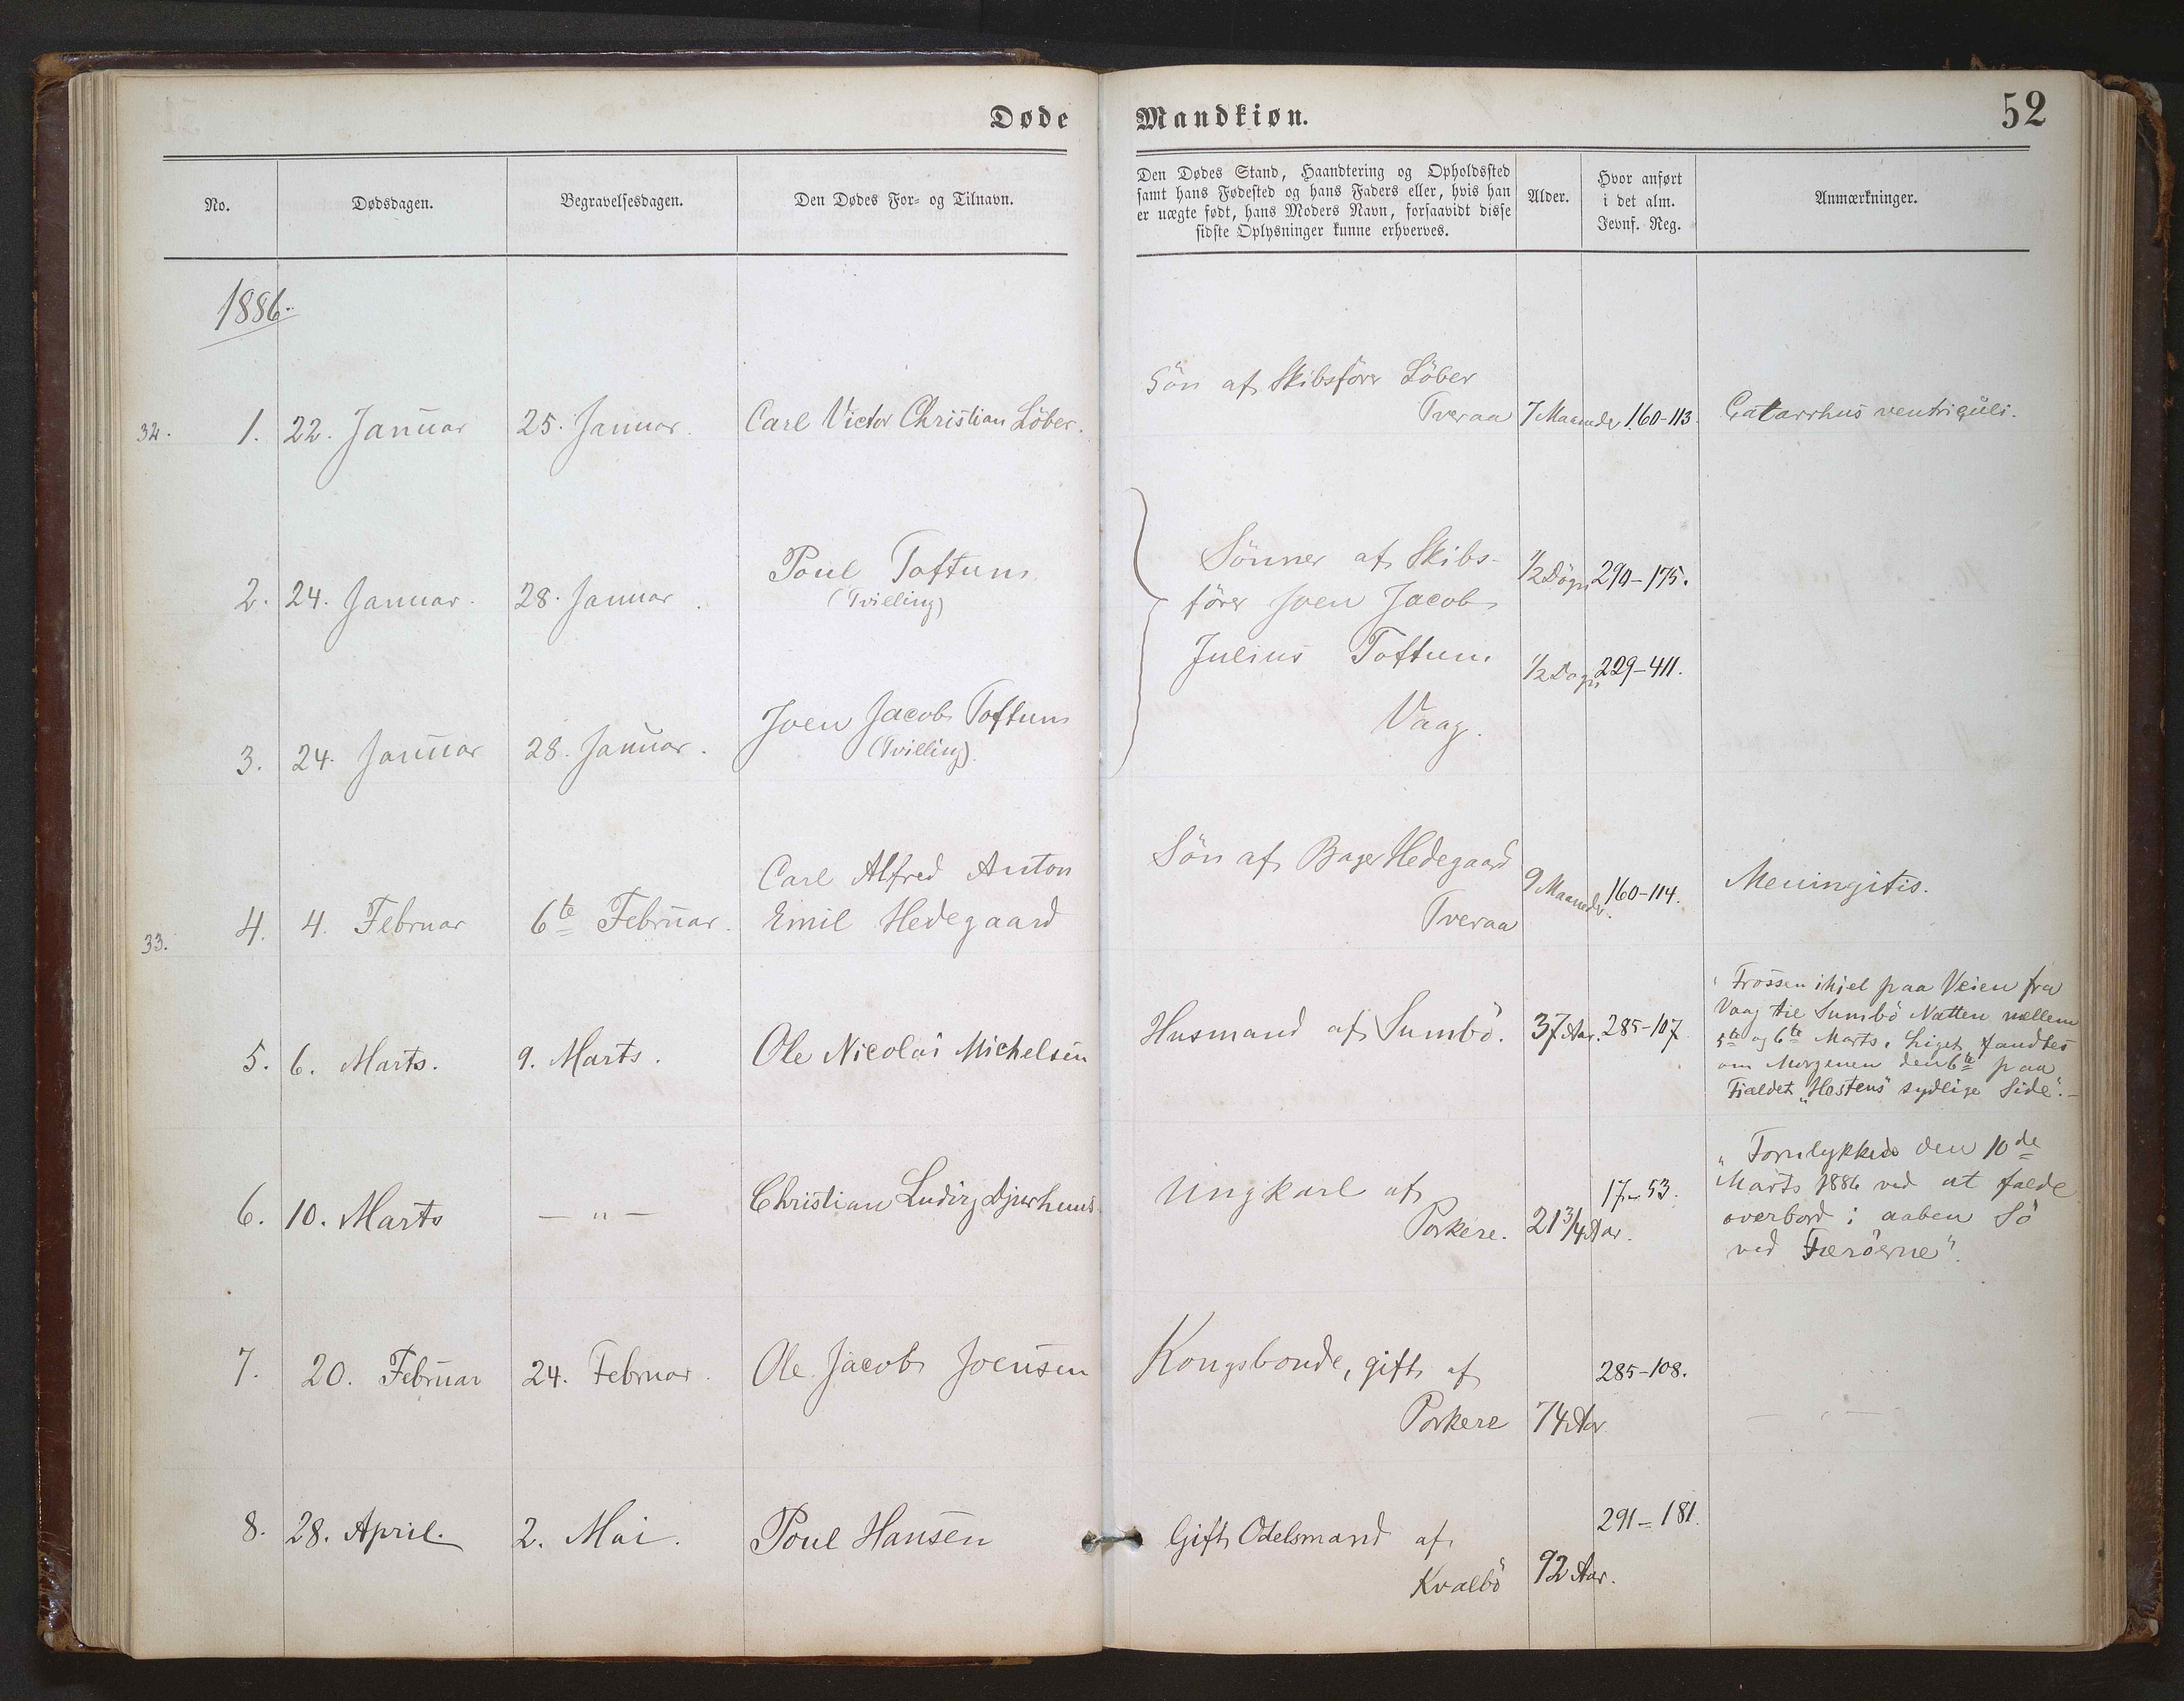 Døde Mandkiøn. 52
No. Dødsdagen. Begravelsesdagen. Den Dødes For- og Tilnavn.
Den Dødes Stand, Haandtering og Opholdssted
samt hans Fødested og hans Faders eller, hvis han
er uægte født, hans Moders Navn, forsaavidt disse
sidste Oplysninger kunne erhverves.
Alder.
Hvor anført
i det alm.
Jevnf. Reg.
Anmærkninger.
1886.
32. 1. 22. Januar 25. Januar. Carl Victor Christian Löber.
Sön af Skibsfører Löber
Tveraa 7 Maaneder 160-113. Catarrhus ventriculi.
2. 24. Januar. 28. Januar. Poul Toftum
(Tvilling)
3. 24. Januar 28. Januar. Joen Jacob Toftum
(Tvilling).
Sönner af Skibs-
fører Joen Jacob
Julius Toftum
Vaag.
1/2 Døgn 290-175.
1/2 Døgn 229-411.
33. 4. 4. Februar 6te Februar. Carl Alfred Anton
Emil Hedegaard
Sön af Bager Hedegaard
Tveraa
9 Maaneder. 160-114. Meningitis.
5. 6. Marts. 9. Marts. Ole Nicolai Michelsen
Husmand af Sumbö. 37 Aar. 285-107
"Frossen ihjel paa Veien fra
Vaag til Sumbö Natten mellem
5te og 6te Marts. Liget fandtes
om Morgenen den 6te paa
Fjeldet "Hestens" sydlige Side".-
6. 10. Marts — " — Christian Ludvig Djurhuus
Ungkarl af
Porkere. 21 3/4 Aar. 17-53.
"Forulykkede den 10de
Marts 1886 ved at falde
overbord i aaben Sö
ved Færöerne".
7. 20. Februar 24. Februar. Ole Jacob Joensen
Kongsbonde, gift af
Porkere 74 Aar 285-108.
8. 28. April. 2. Mai. Poul Hansen
Gift Odelsmand af
Kvalbö 92 Aar. 291-181.